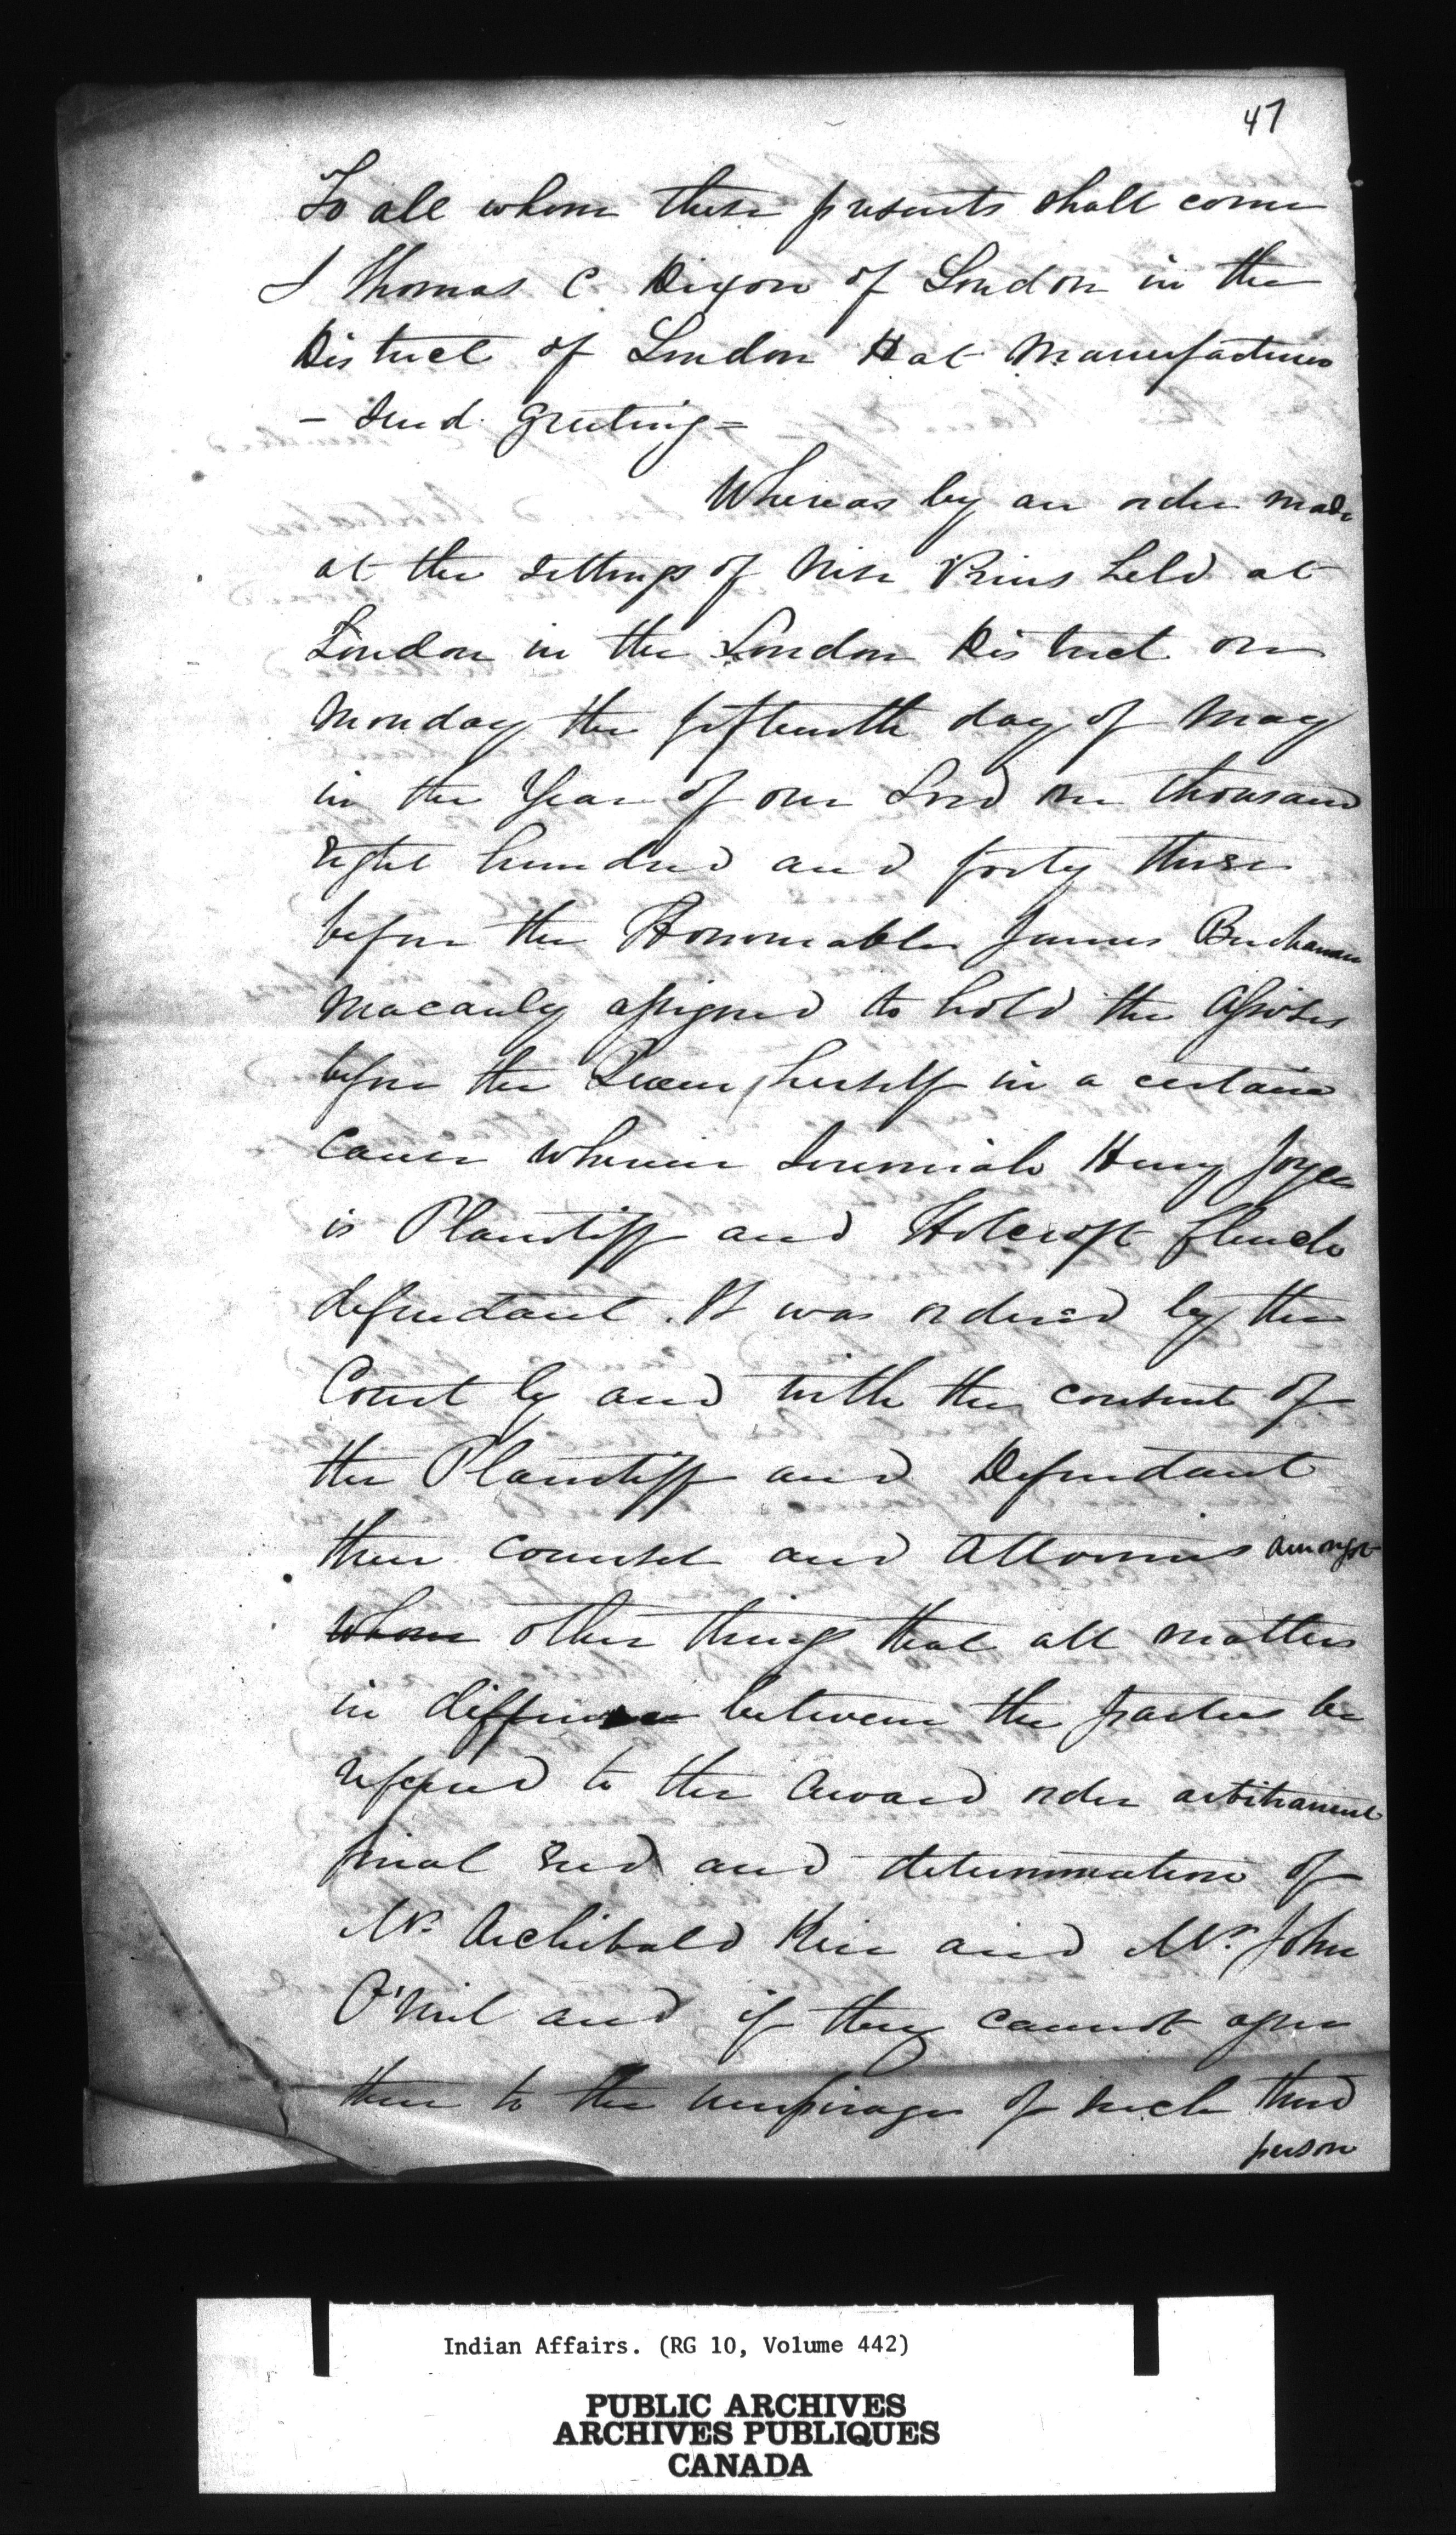 47
To all whom these presents shall come
I Thomas C Dixon of London in the
District of London Hat Manufacturer
- Send Greeting =
Whereas by an order made
at the Sittings of Nisi Prius held at
London in the London District on
Monday the fifteenth day of May
in the Year of our Lord one thousand
Eight hundred and forty three
before the Honourable James Buchanan
Macauly assigned to hold the Assizes
before the Queen herself in a certain
Cause wherein Jeremiah Henry Joyce
is Plaintiff and Holcroft Clench
defendant. It was ordered by the
Court by and with the consent of
the Plaintiff and Defendant
their counsel and Attornies amongst
whom other things that all matters
in difference between the parties be
referred to the Award order arbitrament
final End and determination of
Mr. Archibald Kerr and Mr. John
O'Neil and if they cannot agree
then to the umpirage of such third
person
Indian Affairs. (RG 10, Volume 442)
PUBLIC ARCHIVES
ARCHIVES PUBLIQUES
CANADA